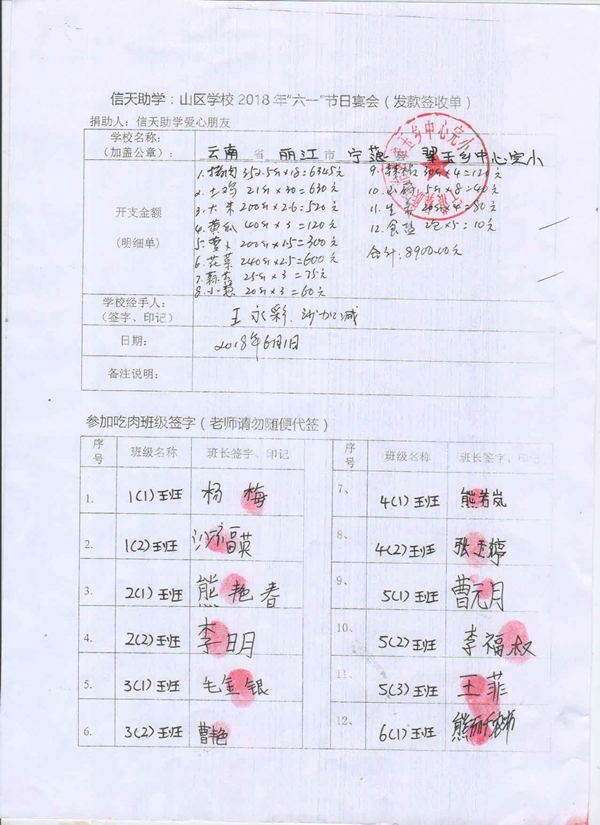 信天助学：山区学校2018年“六一”节日宴会（发款签收单）
捐助人：信天助学爱心朋友
学校名称：
（加盖公章）：
云南 省 丽江 市 宁蒗 县 翠玉乡中心完小
开支金额
（明细单）
1.猪肉352.5斤×18=6345元
2.土鸡21斤×30=630元
3.大米200斤×2.6=520元
4.黄瓜40斤×3=120元
5.萝卜200斤×1.5=300元
6.花菜240斤×2.5=600元
7.蒜苔25斤×3=75元
8.小葱20斤×3=60元
9. 30斤×4=120元
10. 5斤×8=40元
11.生菜20斤×4=80元
12.食盐2包×5=10元
合计:8900.00元
学校经手人：
（签字、印记）
王永彩、
日期：
2018年6月1日
备注说明：
参加吃肉班级签字（老师请勿随便代签）
序号 班级名称 班长签字、印记 序号 班级名称 班长签字、印记
1. 1(1)班 杨梅 7、 4(1)班 熊若岚
2. 1(2)班 沙福英 8、 4(2)班 张婷
3. 2(1)班 熊艳春 9、 5(1)班 曹元月
4. 2(2)班 李日月 10、 5(2)班 李福叔
5. 3(1)班 毛金银 11、 5(3)班 王菲
6. 3(2)班 曹艳 12、 6(1)班 熊